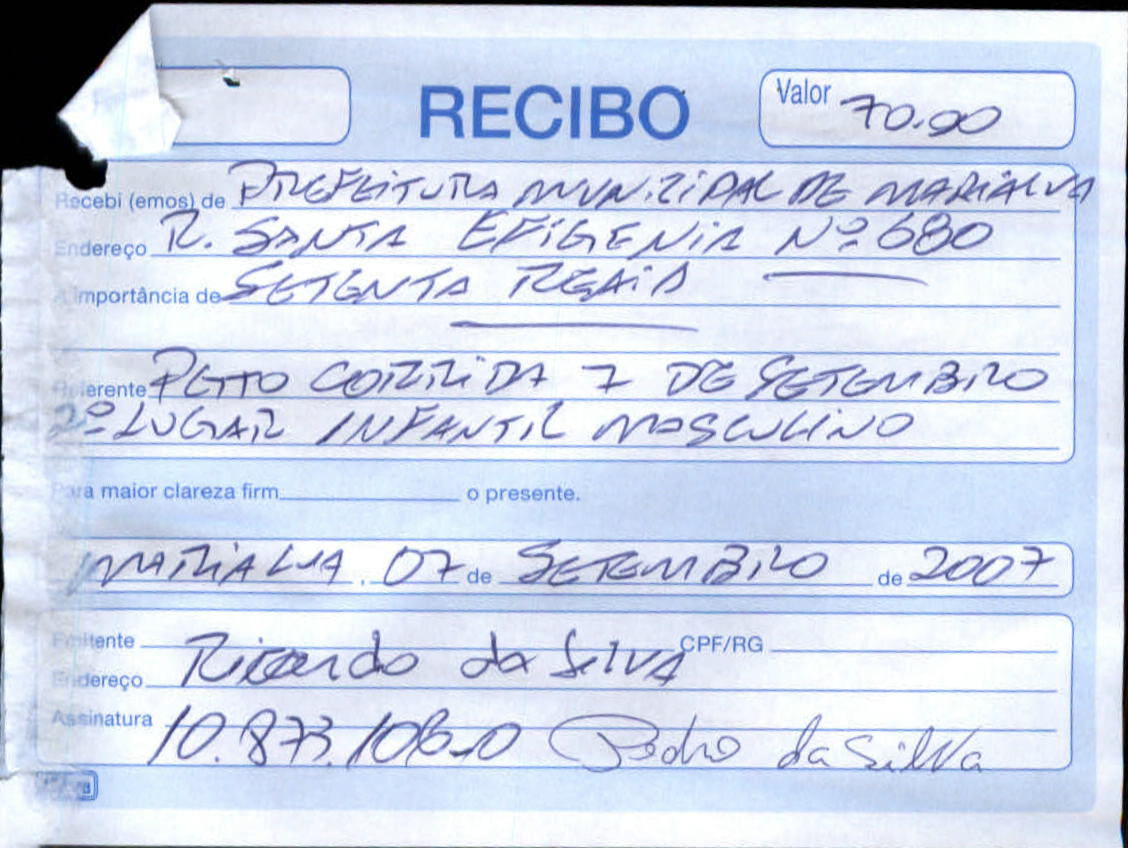 RECIBO
Valor 70.00
Recebi (emos) de PREFEITURA MUNICIPAL DE MARIALVA
Endereço R. SANTA EFIGENIA Nº 680
A importância de SETENTA REAIS
Referente PGTO CORRIDA 7 DE SETEMBRO
2º LUGAR INFANTIL MASCULINO
Para maior clareza firm o presente.
MARIALVA, 07 de SETEMBRO de 2007
Emitente Ricardo da SilVA CPF/RG
Endereço
Assinatura 10.873.106-0 Pedro da SilVa